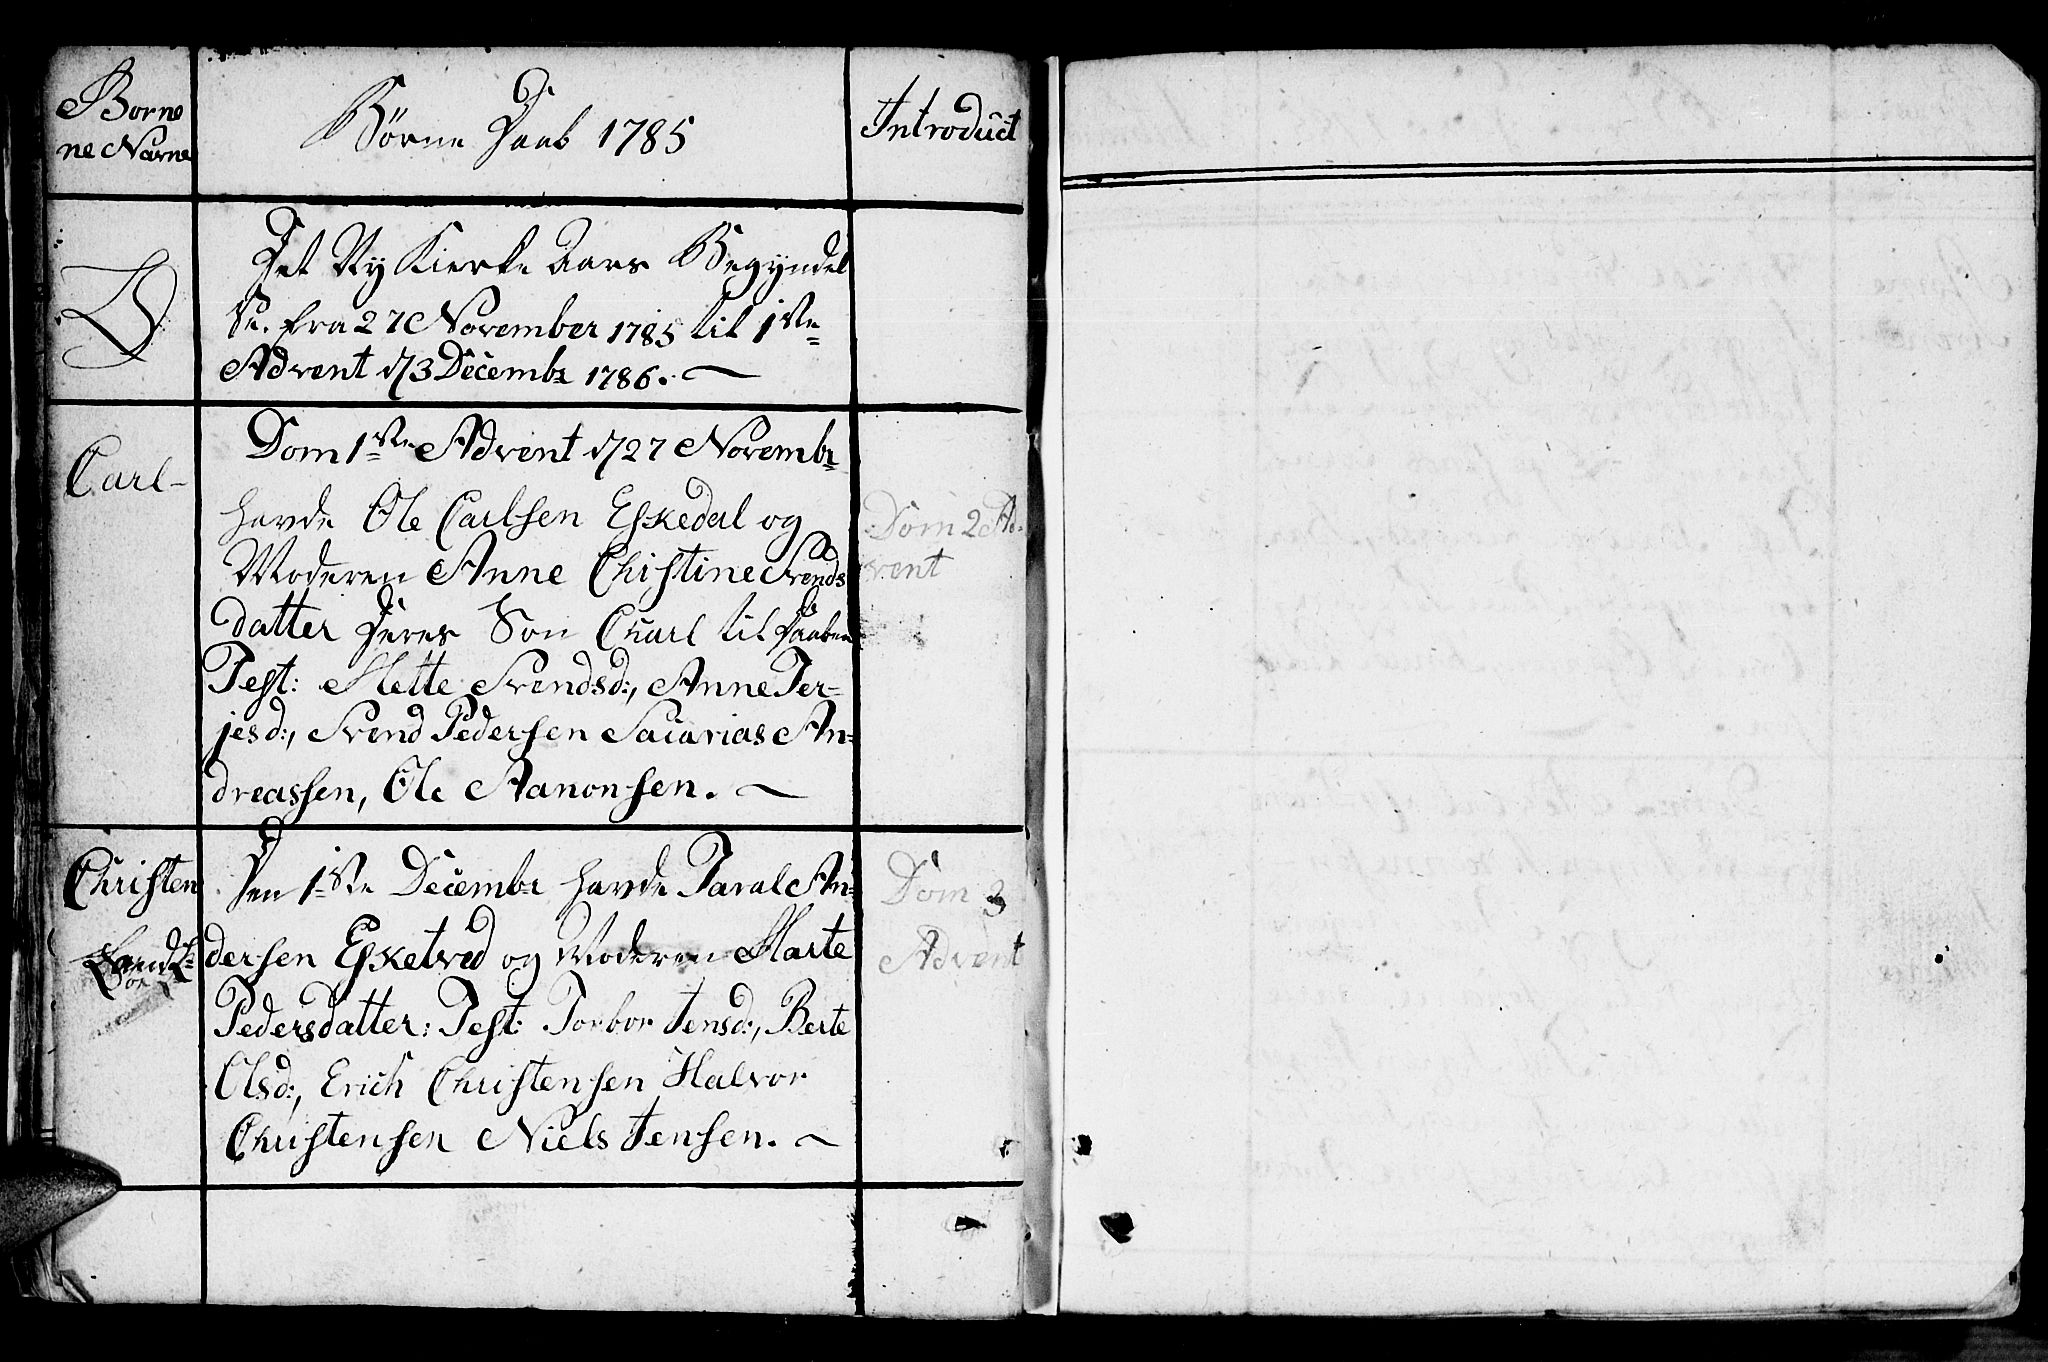 Børne
ne Navne
Børne Daab 1785
Introduct
Det Ny Kierke Aars Begyndel
se. fra 27 November 1785 til 1ste
Advent d 3 Decembr 1786.
Carl
Dom 1ste Advent d 27 Novembr
havde Ole Carlsen Eskedal og
Moderen Anne Christine Svends
datter Deres Søn Charl til Daaben
Test: Mette Svendsd:, Anne Ter-
jesd:, Svend Pedersen Sacarias An-
dreassen, Ole Aanonsen.
Dom 2 Ad-
vent
Christen
Den 1ste Decembr havde Taral An-
dersen Esketved og Moderen Marte
Pedersdatter: Test: Torbor Jensd:, Berte
Olsd:, Erich Christensen Halvor
Christensen Niels Jensen.
Dom 3
Advent